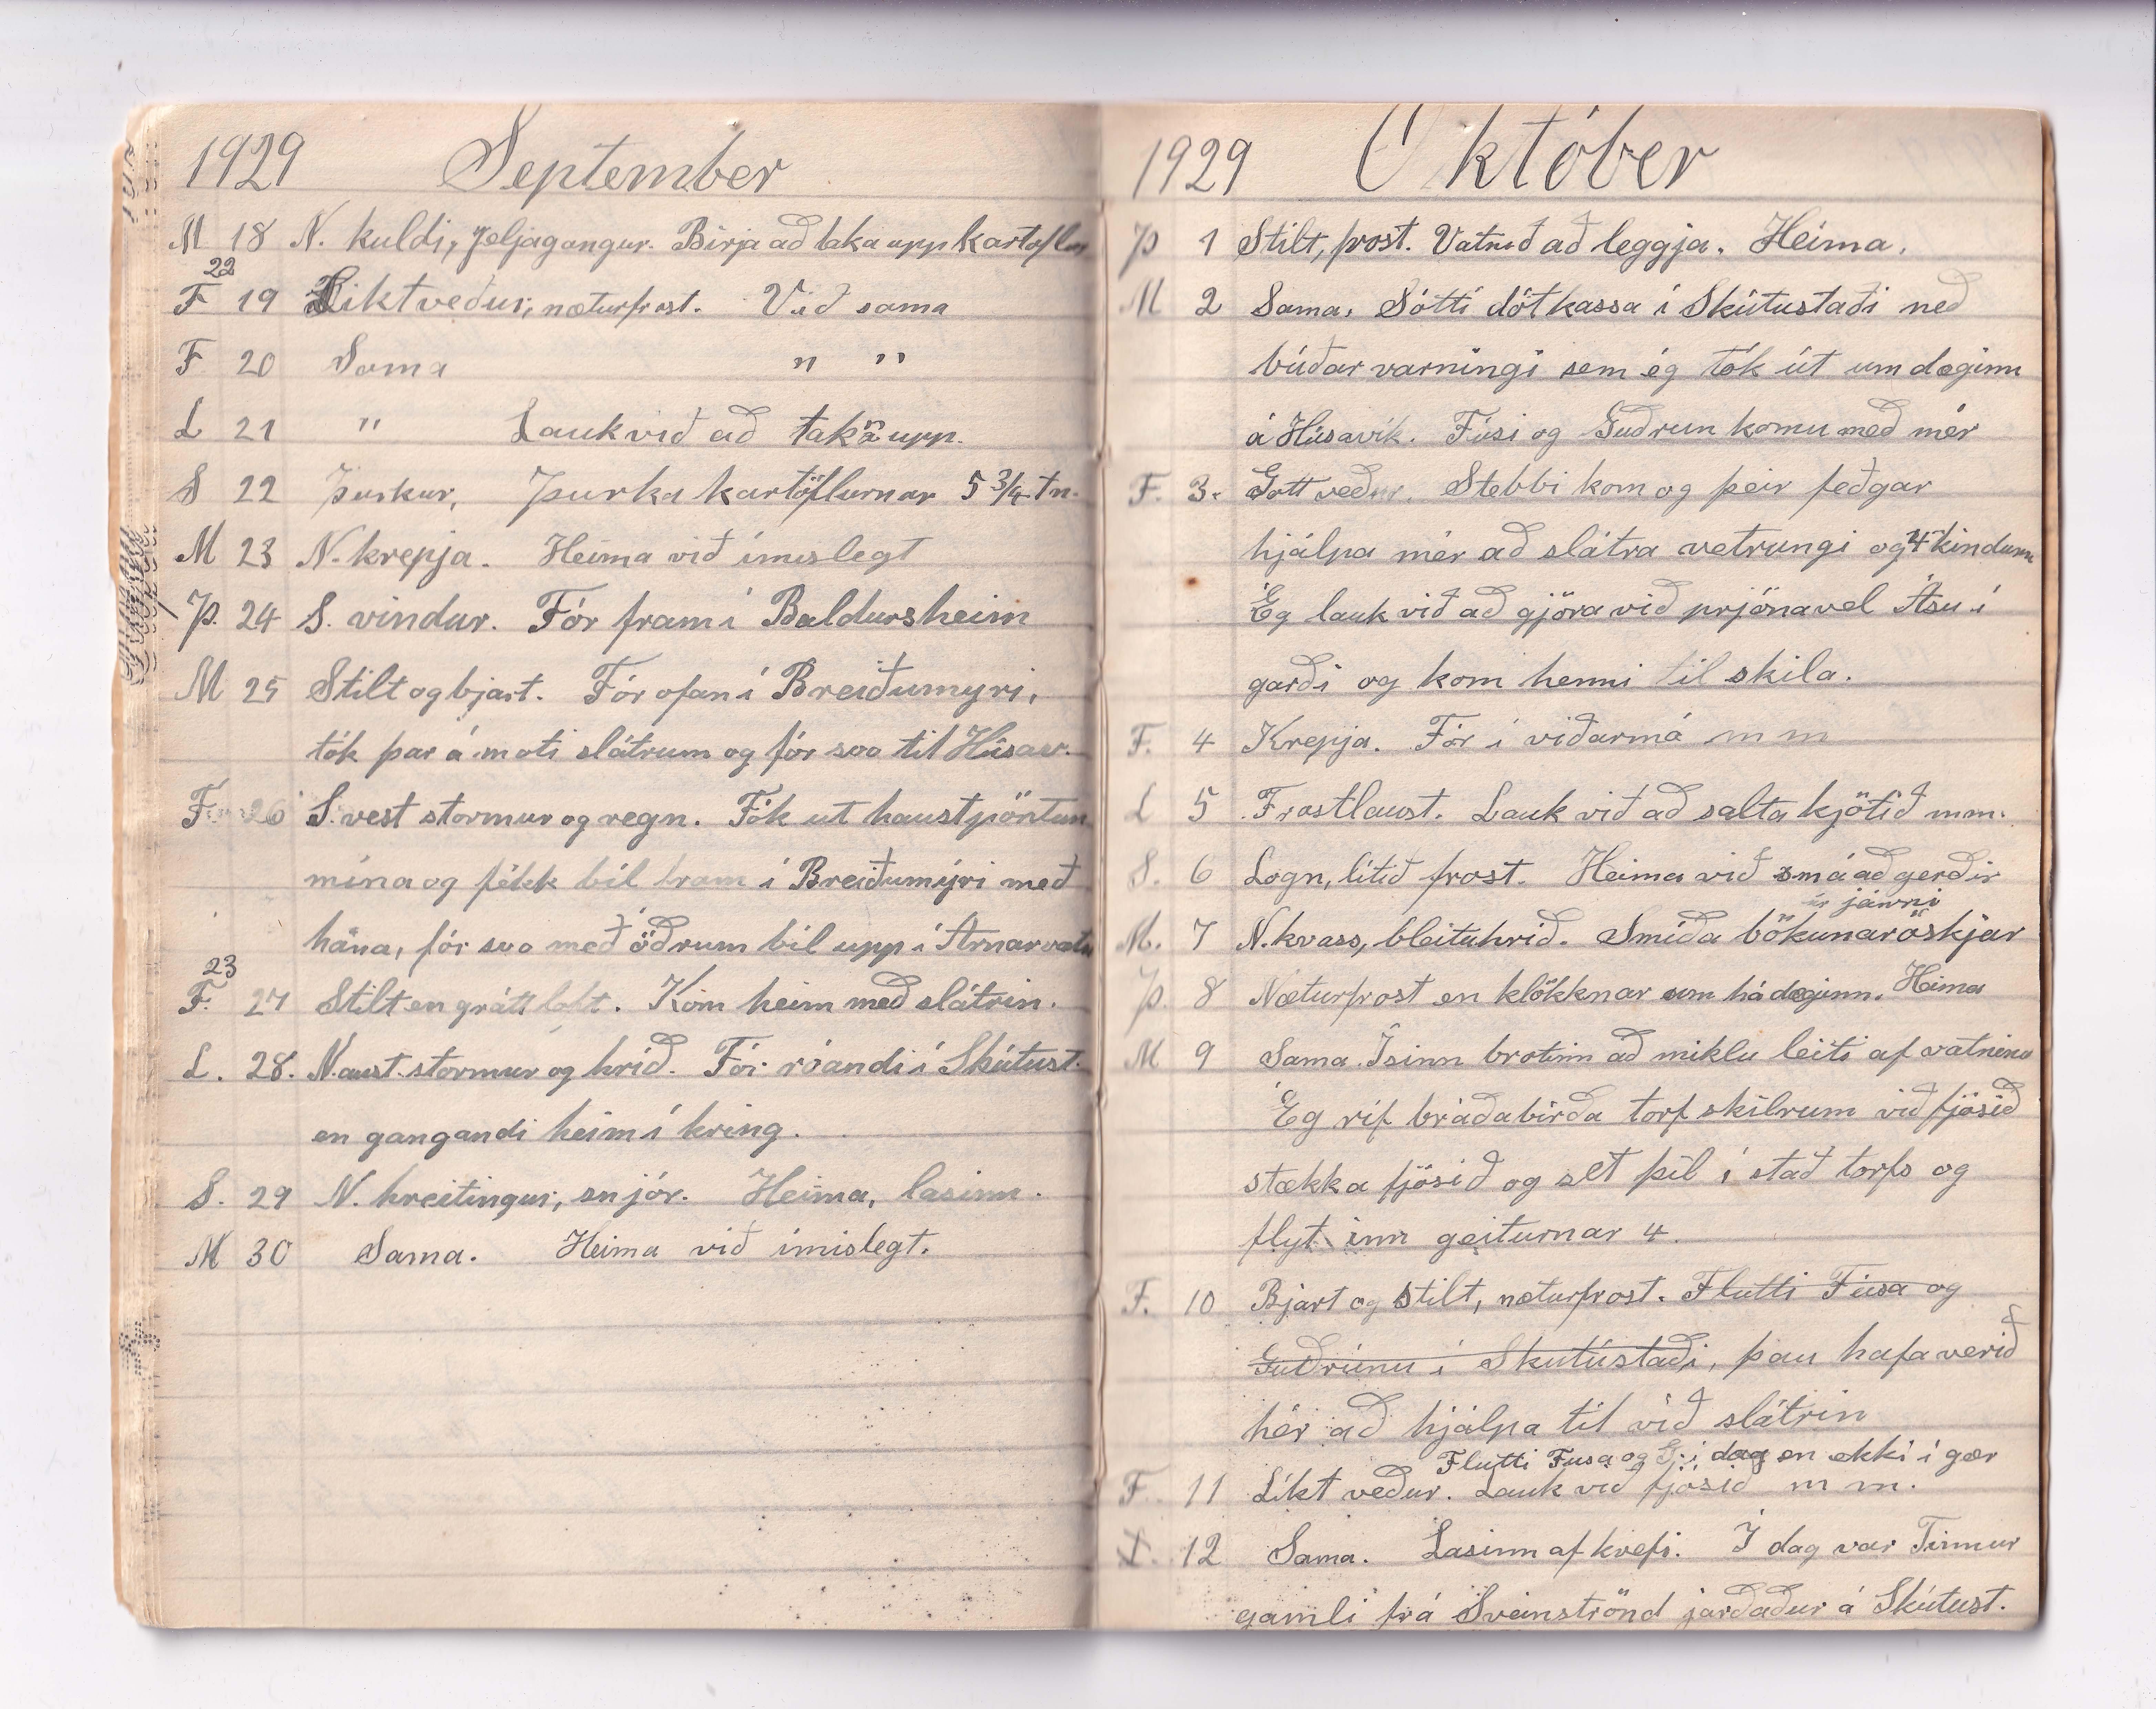 1929 September
M 18 N. kuldi, jeljagangur. Birja að taka upp kartoflur
22
F 19 Líkt veður, næturfrost. Við sama
F 20 Sama " "
L 21 " Lauk við að taka upp.
S 22 Þurkur, Þurka kartöflurnar 5 3/4 tn.
M 23 N. krepja. Heima við ímislegt
Þ. 24 S. vindur. Fór fram í Baldursheim
M 25 Stilt og bjart. Fór ofan í Breiðumyri,
tók þar á moti slátrum og fór svo til Húsav.
F 26 S. vest stormur og regn. Tók ut haustpöntun
mína og fékk bíl fram í Breiðumýri með
hána, fór svo með öðrum bíl upp í Arnarvatn
23
F. 27 Stilt en grátt loft. Kom heim með slátrin.
L. 28. N. aust. stormur og hríð. Fór róandi í Skútust.
en gangandi heim í kring.
S. 29 N. hreitingur, snjór. Heima, lasinn.
M 30 Sama. Heima við ímislegt.
1929 Október
Þ 1 Stilt, frost. Vatnið að leggja. Heima.
M 2 Sama. Sótti dótkassa í Skútustaði með
búðar varningi sem ég tók út um daginn
á Húsavík. Fúsi og Guðrun komu með mér
F. 3. Gott veður. Stebbi kom og þeir feðgar
hjálpa mér að slátra vetrungi og 4 kindum
Ég lauk við að gjöra við prjónavel Ásu í
garði og kom henni til skila.
F. 4 Krepja. Fór í viðarmó m m
L 5 Frostlaust. Lauk við að salta kjötið m m.
S. 6 Logn, lítið frost. Heima við smá aðgerðir
úr járni
M. 7 N. kvass, bleituhríð. Smíða bökunaröskjur
Þ. 8 Næturfrost en klökknar um hádaginn. Heima
M 9 Sama. Ísinn brotinn að miklu leiti af vatninu
Ég ríf bráðabirða torf skilrum við fjósið
stækka fjósið og set þil í stað torfs og
flyt inn geiturnar 4.
F. 10 Bjart og stilt, næturfrost. Flutti Fúsa og
Guðrúnu í Skutústaði, þau hafa verið
hér að hjálpa til við slátrin
Flutti Fusa og G. í dag en ekki í gær
F. 11 Líkt veður. Lauk við fjósið m m.
L. 12 Sama. Lasinn af kvefi. Í dag var Finnur
gamli frá Sveinströnd jarðaður á Skútust.